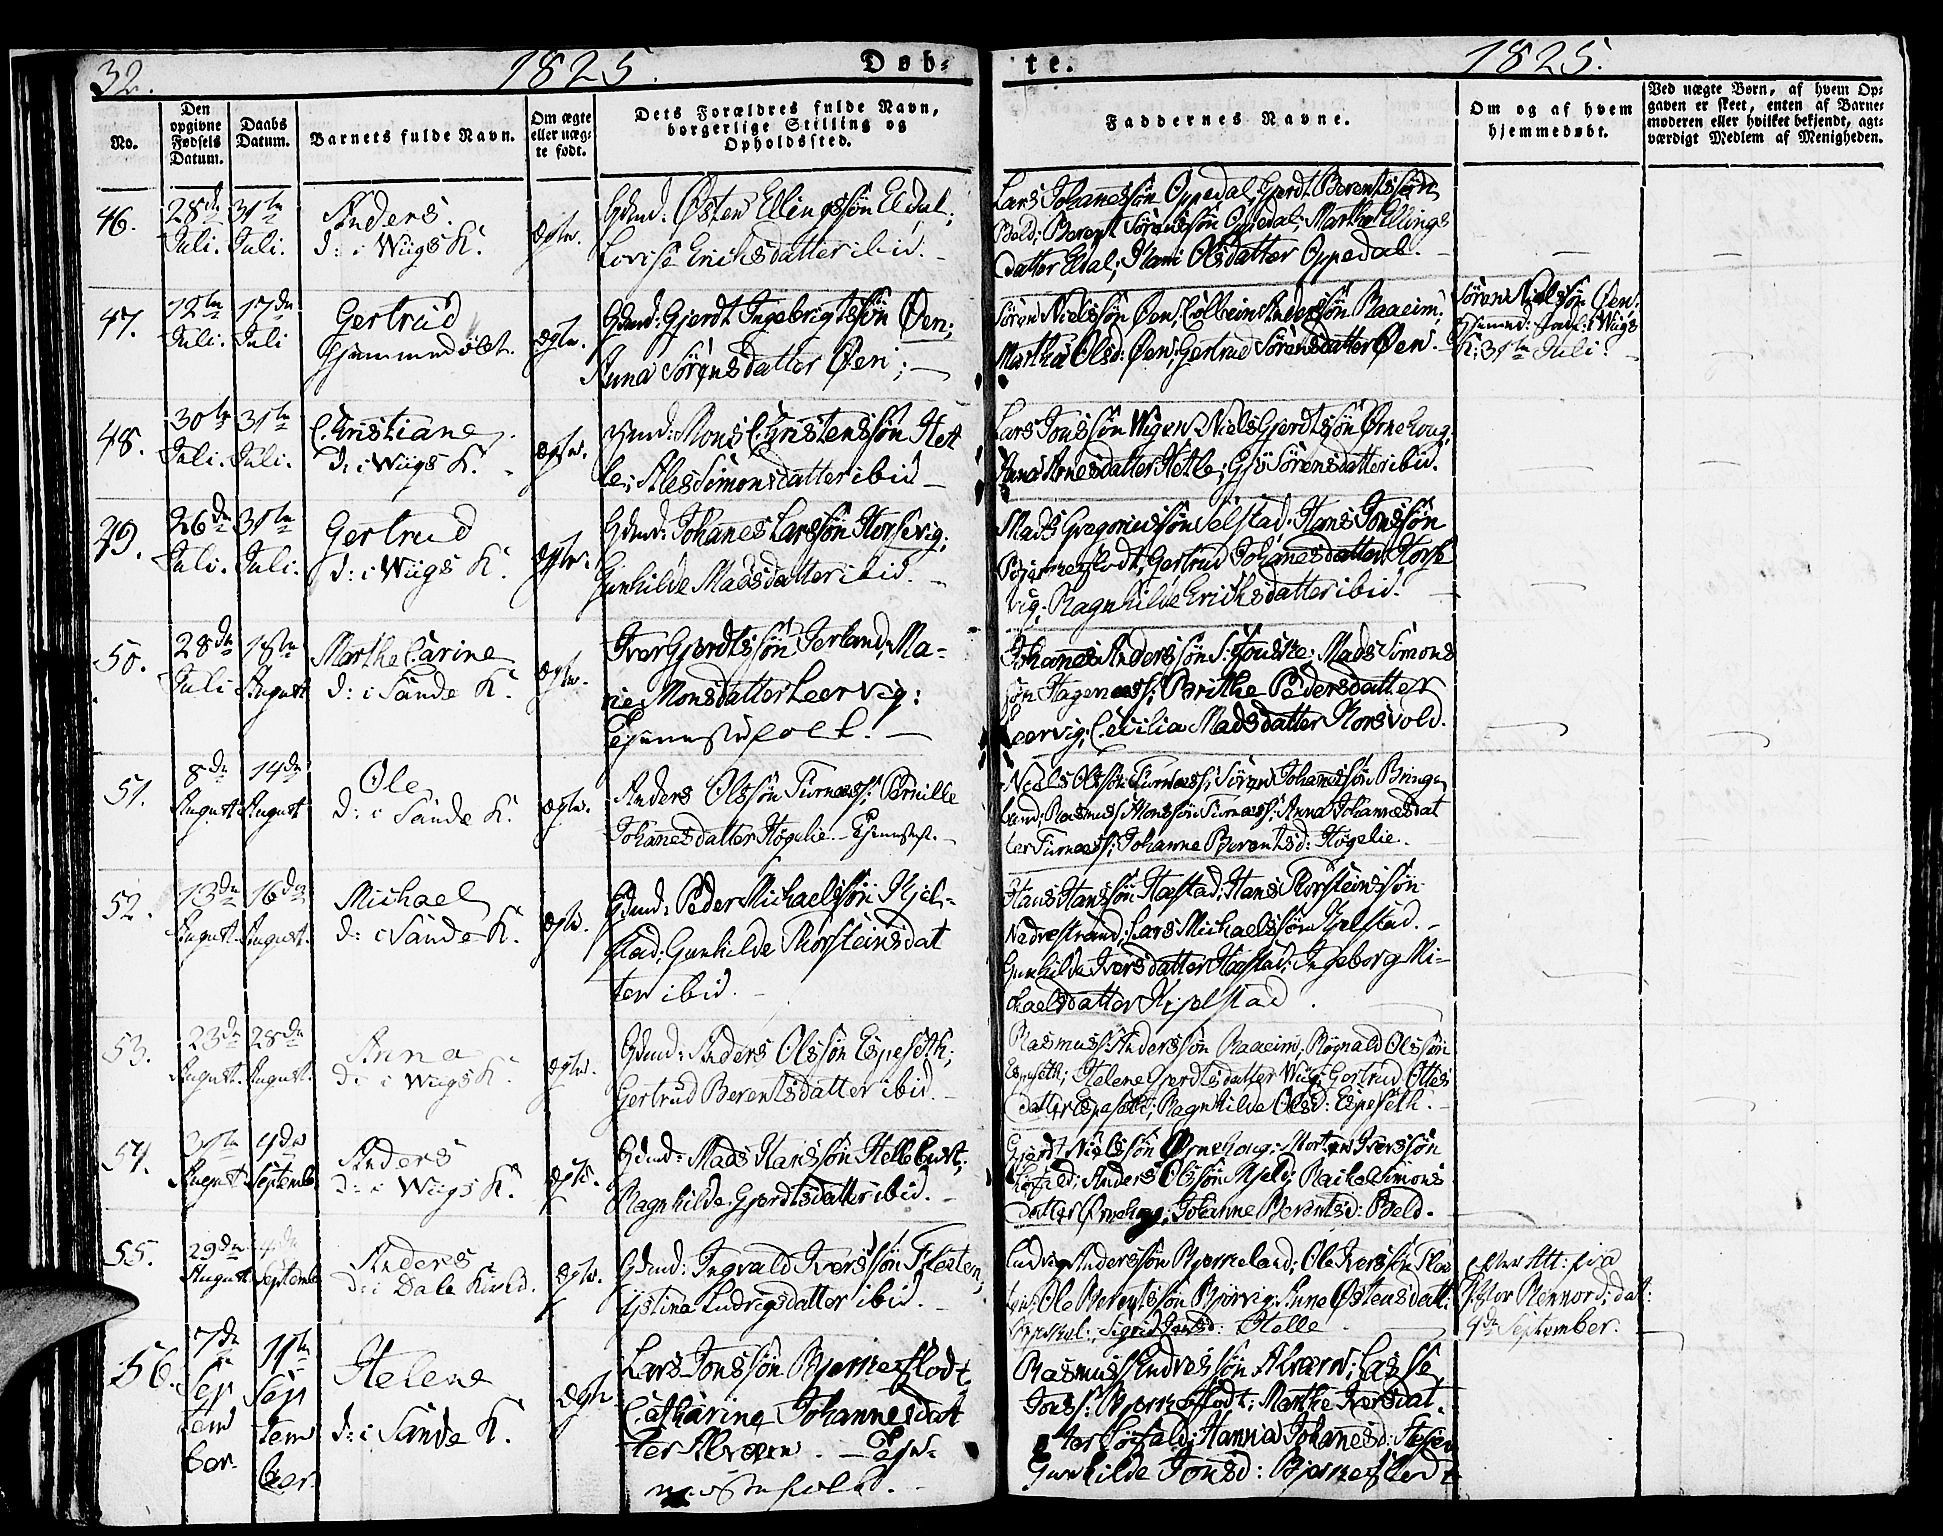 32. 1825. Døb- te. 1825.
No.
Den opgivne Fødsels Datum.
Daabs Datum.
Barnets fulde Navn.
Om ægte eller uæg- te født.
Dets Forældres fulde Navn, borgerlige Stilling og Opholdssted.
Faddernes Navne.
Om og af hvem hjemmedøbt.
Ved uægte Børn, af hvem Op- gaven er skeet, enten af Barne- moderen eller hvilket bekjendt, agt- værdigt Medlem af Menigheden.
46. 28de Juli. 31te Juli.
Anders.
d: i Wiigs K.
ægte.
Gdmd: Østen Ellingssøn Eldal;
Lovise Erichsdatter ibid.
Lars Johanessøn Oppedal, Gjerdt Berentssøn
Beld; Berent Sørenssøn Oppedal; Marthe Ellings
datter Eldal; Olsdatter Oppedal.
47. 12te Juli. 17de Juli
Gertrud
hjemmedøbt.
ægte.
Gdmd: Gjerdt Ingebrigtssøn Øen;
Anna Sørensdatter Øen;
Søren Nielssøn Øen; Colbein Anderssøn Raaeim;
Martha Olsd: Øen; Gertrud Sørensdatter Øen.
Søren Nielssøn Øen;
i Wiigs
K: 31te Juli.
48. 30te Juli. 31te Juli.
Christiane
d: i Wiigs K.
ægte.
Gdmd: Mons Christenssøn Het
le; Ales Simonsdatter ibid
Lars Jonssøn Wigen Niels Gjerdtssøn Ørnehoug,
Anna Monesdatter Hetle; Sørensdatter ibid.
49. 26de Juli. 31te Juli.
Gertrud
d: i Wiigs K.
ægte.
Gdmd: Johanes Larssøn Horsevig;
Gunhilde Madsdatter ibid.
Mads Gregoriussøn Selstad; Hans Jonssøn
Bjerneflodt, Gertrud Johanesdatter Horse
vig; Ragnhilde Erichsdatter ibid.
50. 28de Juli 18te August
Marthe Carine
d: i Sande K.
ægte.
Iver Gjerdtssøn Ierland; Ma-
rie Monsdatter Leervig:
Tjennestfolk.
Johanes Anderssøn Mads Simons
søn Hagenæss; Brithe Pedersdatter
Leervig; Cecilia Madsdatter Korsvold.
51. 8de August 14de August
Ole
d: i Sande K.
ægte.
Anders Olssøn Furnæss; Pernille
Johanesdatter Høgelie.
Niels Olssøn Furnæss; Søren Johanessøn Bringe
land; Rasmus Monssøn Furnæss; Anna Johannesdat
ter Furnæss; Johanne Berentsd: Høgelie.
52. 13de August. 16de August.
Michael
d: i Sande K.
ægte.
Gdmd: Peder Michaelssøn Kjel-
stad; Gunhilde Thorsteinsdat
ter ibid.
Hans Hanssøn Haastad; Hans Thorsteinssøn
Nedrestrand; Lars Michaelssøn Kjelstad.
Gunhilde Iversdatter Haastad; Ingeborg Mi-
chaelsdatter Kjelstad.
53. 23de August. 28de August.
Anna
d: i Wiigs K.
ægte.
Gdmd: Anders Olssøn Espeseth;
Gertrud Berentsdatter ibid.
Rasmus Anderssøn Raaeim; Røgnald Olssøn
Espeseth; Helene Gjerdtsdatter Wiig; Gertrud Ottes
datter Espeseth; Ragnhilde Olsd: Espeseth.
54. 31te August. 4de September
Anders
d: i Wiigs K.
ægte.
Gdmd: Mads Hanssøn Hellebust;
Ragnhilde Gjerdtsdatter ibid.
Gjerdt Nielssøn Ørnehoug; Morten Iverssøn
Anders Olssøn Rachel Simons
datter Ørnehoug; Johanne Berentsd: Beld.
55. 29de August 4de September
Anders
d: i Dale Kirke.
ægte.
Gdmd: Ingvald Iverssøn Fleten;
Ludvigsdatter ibid.
Ludvig Anderssøn Bjerneland; Ole Iverssøn Fle
ten; Ole Berentssøn Bjørvig; Anne Østensdatt:
Sigrid Helle
efter Att: fra
Pastor Rennord; dat:
4de September.
56. 7de Sep tem ber. 11te Sep tem ber.
Helene
d: i Sande K.
ægte
Lars Jonssøn Bjerneflodt
Catharine Johannesdat
ter Alværn. Tjen-
nestefolk.
Rasmus Andressøn Alværn; Lasse
Jonss: Bjerneflodt; Marthe Iversdat
ter Hanna Johanesd:
Gunhilde Jonsd: Bjerneflodt